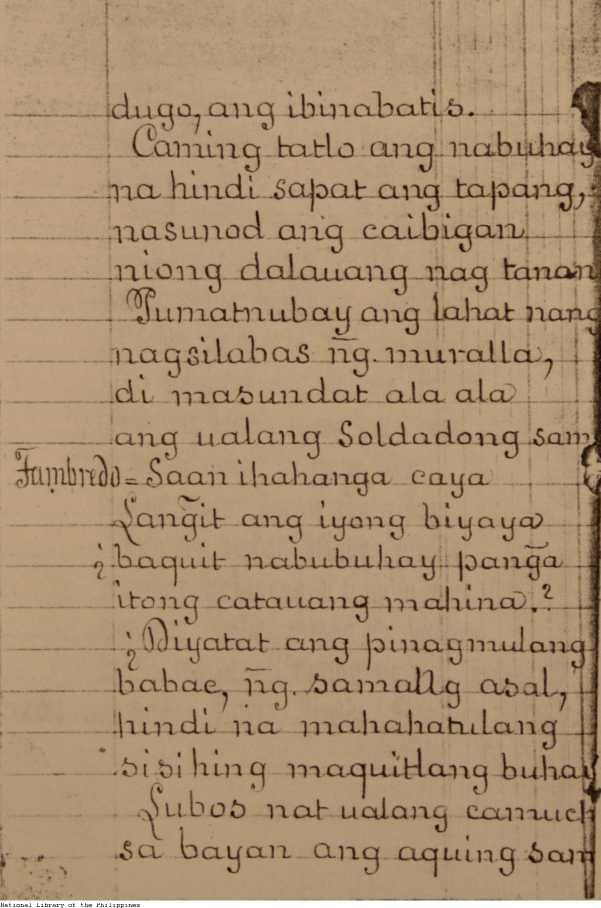 dugo, ang ibinabatis.
Caming tatlo ang nabuhay
na hindi sapat ang tapang,
nasunod ang caibigan
niong dalauang nag tanan
Tumatnubay ang lahat nang
nagsilabas n͠g. muralla,
di masundat ala ala
ang ualang Soldadong sam
Fambredo = Saan ihahanga caya
Lan͠git ang iyong biyaya
¿baquit nabubuhay pan͠ga
itong catauang mahina.?
¿Diyatat ang pinagmulang
babae, n͠g. samallg asal,
hindi na mahahatulang
sisihing maquitlang buhay
Lubos nat ualang camuch
sa bayan ang aquing sam
National Library of the Philippines